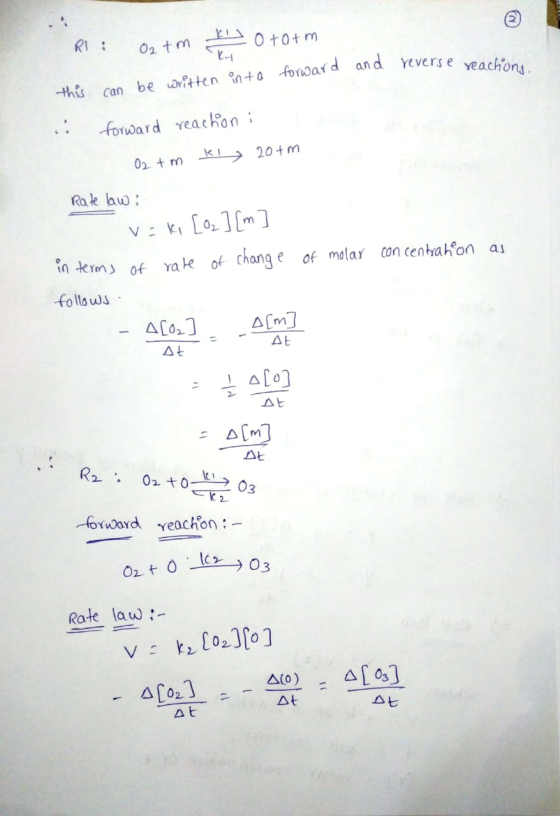 ∴ ②
R1 : O2 + m ⇌ O + O + m (k1, k-1)
this can be written into forward and reverse reactions.
∴ forward reaction :
O2 + m —k1→ 2O + m
Rate law :
V = k1 [O2][m]
in terms of rate of change of molar concentration as
follows.
- Δ[O2]/Δt = - Δ[m]/Δt
= 1/2 Δ[O]/Δt
= Δ[m]/Δt
∴ R2 : O2 + O ⇌ O3 (k1, k2)
forward reaction :-
O2 + O —k2→ O3
Rate law :-
V = k2 [O2][O]
- Δ[O2]/Δt = - Δ(O)/Δt = Δ[O3]/Δt